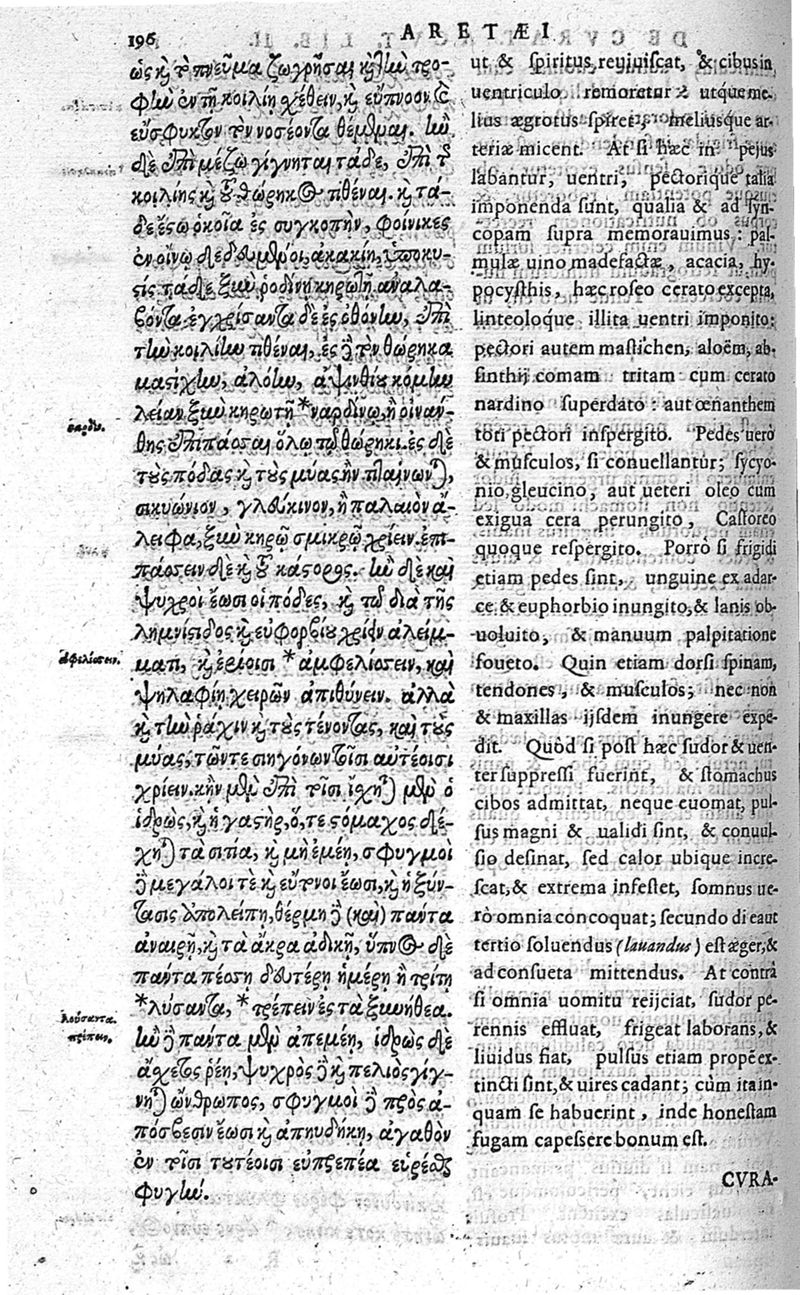 196
ARETÆI
ὡς κὶ τὸ πνεῦμα ζωγρῆσαι κὶ τὴν τρο-
φὴν ἐν τῇ κοιλίῃ σχέθειν, κὶ εὔπνοον κὶ
εὔσφυκτον τὸν νοσέοντα θέμεναι. ἢν
δὲ ἐπὶ μέζω γίγνηται τάδε, ἐπὶ τῆς
κοιλίης κὶ τοῦ θώρηκος τιθέναι. κὶ τά-
δε ἔσω ὁκοῖα ἐς συγκοπὴν, φοίνικες
ἐν οἴνῳ δεδευμένοι, ἀκακίη, ὑποκυ-
σὶς ταῦτα δὲ ξὺν ῥοδίνῃ κηρωτῇ ἀναλα-
βόντα ἐγχρίσαντα δὲ ἐς ὀθόνην, ἐπὶ
τὴν κοιλίην τιθέναι, ἐς δὲ τὸν θώρηκα
μαστίχην, ἀλόην, ἀψινθίου κόμην
λείαν ξὺν κηρωτῇ *ναρδίνῳ, ἢ οἰνάν-
θης ἐπιπάσσαι ὅλῳ τῷ θώρηκι. ἐς δὲ
τοὺς πόδας κὶ τοὺς μύας ἢν
σικυώνιον, γλεύκινον, ἢ παλαιὸν ἄ-
λειφα, ξὺν κηρῷ σμικρῷ χρίειν. ἐπι-
πάσσειν δὲ κὶ τοῦ κάστορος. ἢν δὲ καὶ
ψυχροὶ ἔωσι οἱ πόδες, κὶ τῷ διὰ τῆς
λημνίστιδος κὶ εὐφορβίου χρίειν ἀλείμ-
ματι, κὶ ἐρίοισι *ἀμφελίσσειν, καὶ
ψηλαφίῃ χειρῶν ἀπιθύνειν. ἀλλὰ
κὶ τὴν ῥάχιν κὶ τοὺς τένοντας, καὶ τοὺς
μύας, τῶν τε σιηγόνων τοῖσι αὐτέοισι
χρίειν. κἢν μὲν ἐπὶ τοῖσι ἴσχηται μὲν ὁ
ἱδρὼς, κὶ ἡ γαστὴρ, ὅ, τε στόμαχος δέ-
χηται τὰ σιτία, κὶ μὴ ἐμέῃ, σφυγμοὶ
δὲ μεγάλοι τὲ κὶ εὔτονοι ἔωσι, κὶ ἡ ξύν-
τασις ἀπολείπῃ, θέρμη δὲ (καὶ) πάντα
ἀναιρῇ, κὶ τὰ ἄκρα ἀδικῇ, ὕπνος δὲ
πάντα πέσσῃ δευτέρῃ ἡμέρῃ ἢ τρίτῃ
*λύσαντα, *τρέπειν ἐς τὰ ξυνήθεα.
ἢν δὲ πάντα μὲν ἀπεμέῃ, ἱδρὼς δὲ
ἄσχετος ῥέῃ, ψυχρὸς δὲ κὶ πελιὸς γίγ-
νηται ὥνθρωπος, σφυγμοὶ δὲ πρὸς ἀ-
πόσβεσιν ἔωσι κὶ ἀπηυδήκῃ, ἀγαθὸν
ἐν τοῖσι τουτέοισι εὐπρεπέα εὑρέσθαι
φυγήν.
ἀφελίσσειν.
λούσαντα.
τρέπειν.
ut & spiritus reuiuiscat, & cibus in
uentriculo remoretur: utque me-
lius ægrotus spiret, meliusque ar-
teriæ micent. At si hæc in pejus
labantur, uentri, pectorique talia
imponenda sunt, qualia & ad syn-
copam supra memorauimus: pal-
mulæ uino madefactæ, acacia, hy-
pocysthis, hæc roseo cerato excepta,
linteoloque illita uentri imponito:
pectori autem mastichen, aloëm, ab-
sinthij comam tritam cum cerato
nardino superdato: aut œnanthem
tori pectori inspergito. Pedes uerò
& musculos, si conuellantur; sycyo-
nio, gleucino, aut ueteri oleo cum
exigua cera perungito, Castoreo
quoque respergito. Porrò si frigidi
etiam pedes sint, unguine ex adar-
ce & euphorbio inungito, & lanis ob-
uoluito, & manuum palpitatione
foueto. Quin etiam dorsi spinam,
tendones, & musculos; nec non
& maxillas ijsdem inungere expe-
dit. Quòd si post hæc sudor & uen-
ter suppressi fuerint, & stomachus
cibos admittat, neque euomat, pul-
sus magni & ualidi sint, & conuul-
sio desinat, sed calor ubique incre-
scat, & extrema infestet, somnus ue-
rò omnia concoquat; secundo die aut
tertio soluendus (lauandus) est æger, &
ad consueta mittendus. At contrà
si omnia uomitu reijciat, sudor pe-
rennis effluat, frigeat laborans, &
liuidus fiat, pulsus etiam propè ex-
tincti sint, & uires cadant; cùm ita in-
quam se habuerint, inde honestam
fugam capessere bonum est.
CVRA-